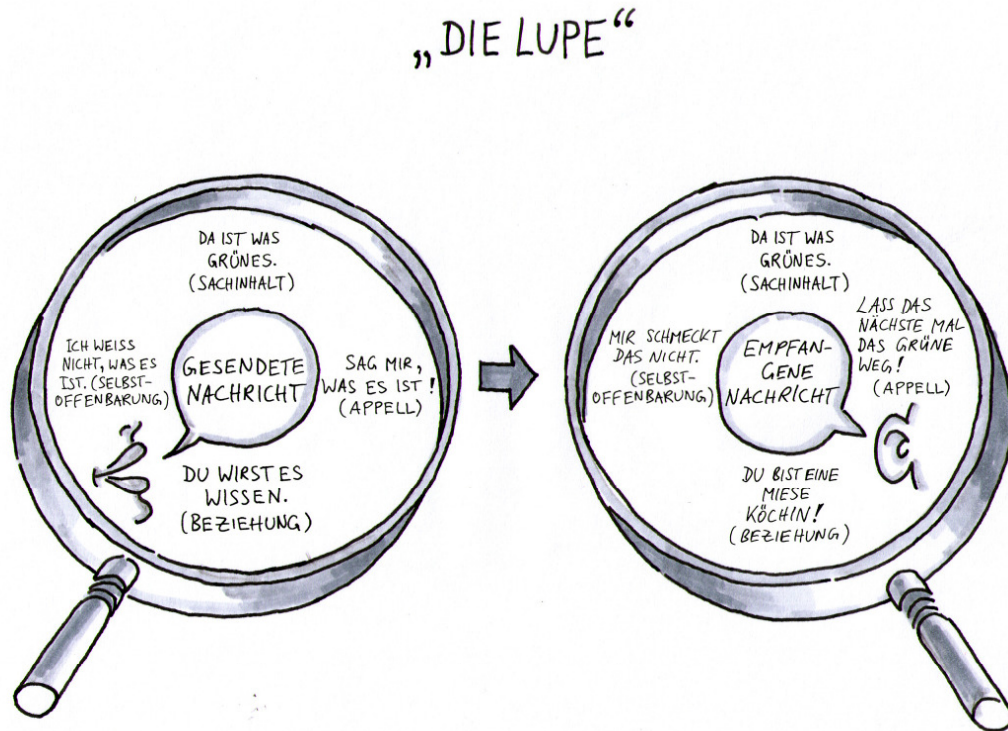 „DIE LUPE“
DA IST WAS
GRÜNES.
(SACHINHALT)
ICH WEISS
NICHT, WAS ES
IST. (SELBST-
OFFENBARUNG)
GESENDETE
NACHRICHT
SAG MIR,
WAS ES IST!
(APPELL)
DU WIRST ES
WISSEN.
(BEZIEHUNG)
DA IST WAS
GRÜNES.
(SACHINHALT)
MIR SCHMECKT
DAS NICHT.
(SELBST-
OFFENBARUNG)
EMPFAN-
GENE
NACHRICHT
LASS DAS
NÄCHSTE MAL
DAS GRÜNE
WEG!
(APPELL)
DU BIST EINE
MIESE
KÖCHIN!
(BEZIEHUNG)